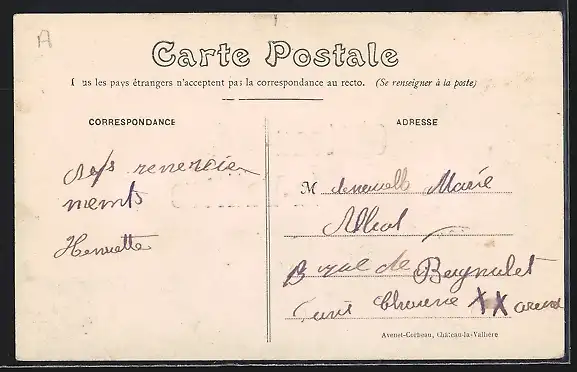 A
Carte Postale
Tous les pays étrangers n'acceptent pas la correspondance au recto. (Se renseigner à la poste)
CORRESPONDANCE
ADRESSE
remercie
ments
Henriette
Mademoiselle Marie
B rue de Bagnolet
Paris XX arond
Avenet-Corbeau, Château-la-Vallière